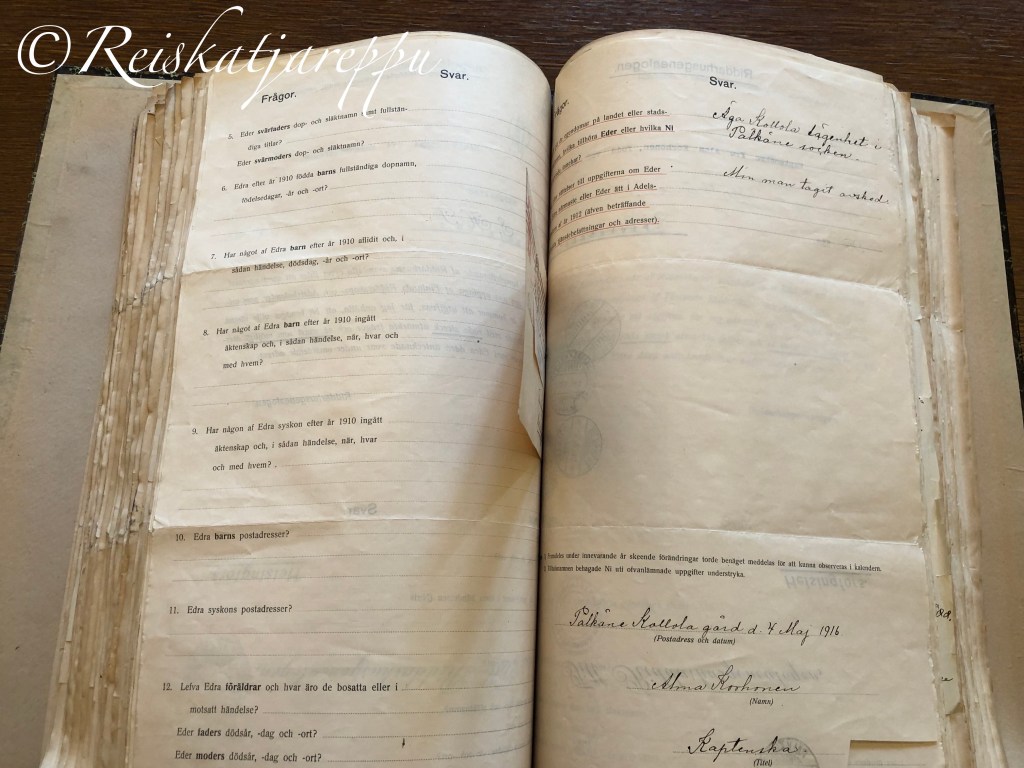 © Reiskatjareppu
Frågor.
Svar.
5. Eder svärfaders dop- och släktnamn samt fullstän-
diga titlar?
Eder svärmoders dop- och släktnamn?
6. Edra efter år 1910 födda barns fullständiga dopnamn,
födelsedagar, -år och -ort?
7. Har något af Edra barn efter år 1910 aflidit och, i
sådan händelse, dödsdag, -år och -ort?
8. Har något af Edra barn efter år 1910 ingått
äktenskap och, i sådan händelse, när, hvar och
med hvem?
9. Har någon af Edra syskon efter år 1910 ingått
äktenskap och, i sådan händelse, när, hvar
och med hvem?
10. Edra barns postadresser?
11. Edra syskons postadresser?
12. Lefva Edra föräldrar och hvar äro de bosatta eller i
motsatt händelse?
Eder faders dödsår, -dag och -ort?
Eder moders dödsår, -dag och -ort?
Svar.
egendomar på landet eller stads-
hvilka tillhöra Eder eller hvilka Ni
till uppgifterna om Eder
eller Eder ätt i Adels-
af år 1912 (äfven beträffande
tjänstebefattningar och adresser).
Äga Kollola lägenhet i
Pälkäne socken.
Min man tagit avsked.
under innevarande år skeende förändringar torde benäget meddelas för att kunna observeras i kalendern.
behagade Ni ett ofvanlämnade uppgifter understryka.
Pälkäne Kollola gård d. 4 Maj 1916
(Postadress och datum)
Alma Korhonen
(Namn)
Kaptenska.
(Titel)